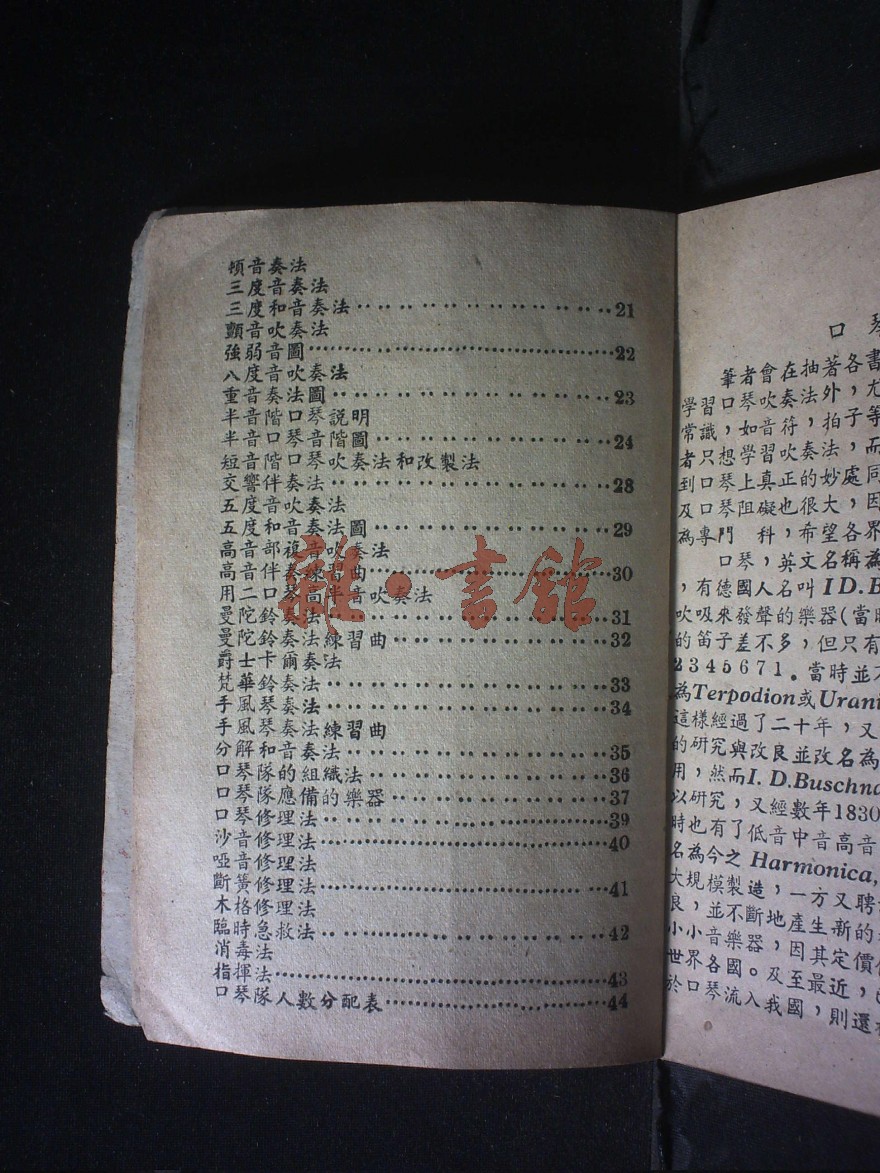 頓音奏法
三度音奏法
三度和音奏法……21
顫音吹奏法
強弱音圖……22
八度音吹奏法
重音奏法圖……23
半音階口琴說明
半音口琴音階圖……24
短音階口琴吹奏法和改製法
交響伴奏法……28
五度音吹奏法
五度和音奏法圖……29
高音部複音吹奏法
高音伴奏練習曲……30
用二口琴高半音吹奏法
曼陀鈴奏法……31
曼陀鈴奏法練習曲……32
爵士卡爾奏法
梵華鈴奏法……33
手風琴奏法……34
手風琴奏法練習曲
分解和音奏法……35
口琴隊的組織法……36
口琴隊應備的樂器……37
口琴修理法……39
沙音修理法……40
啞音修理法
斷簧修理法……41
木格修理法
臨時急救法……42
消毒法
指揮法……43
口琴隊人數分配表……44
口琴
筆者會在抽著各書
學習口琴吹奏法外，尤
常識，如音符，拍子等
者只想學習吹奏法，而
到口琴上真正的妙處同
及口琴阻礙也很大，因
為專門 科，希望各界
口琴，英文名稱為
，有德國人名叫 I D.B
吹吸來發聲的樂器(當時
的笛子差不多，但只有
2 3 4 5 6 7 1。當時並不
為Terpodion或Urani
這樣經過了二十年，又
的研究與改良並改名為
用，然而I. D.Buschna
以研究，又經數年1830
時也有了低音中音高音
名為今之 Harmonica,
大規模製造，一方又聘
良，並不斷地產生新的
小小音樂器，因其定價
世界各國。及至最近，
於口琴流入我國，則還
雜·書館